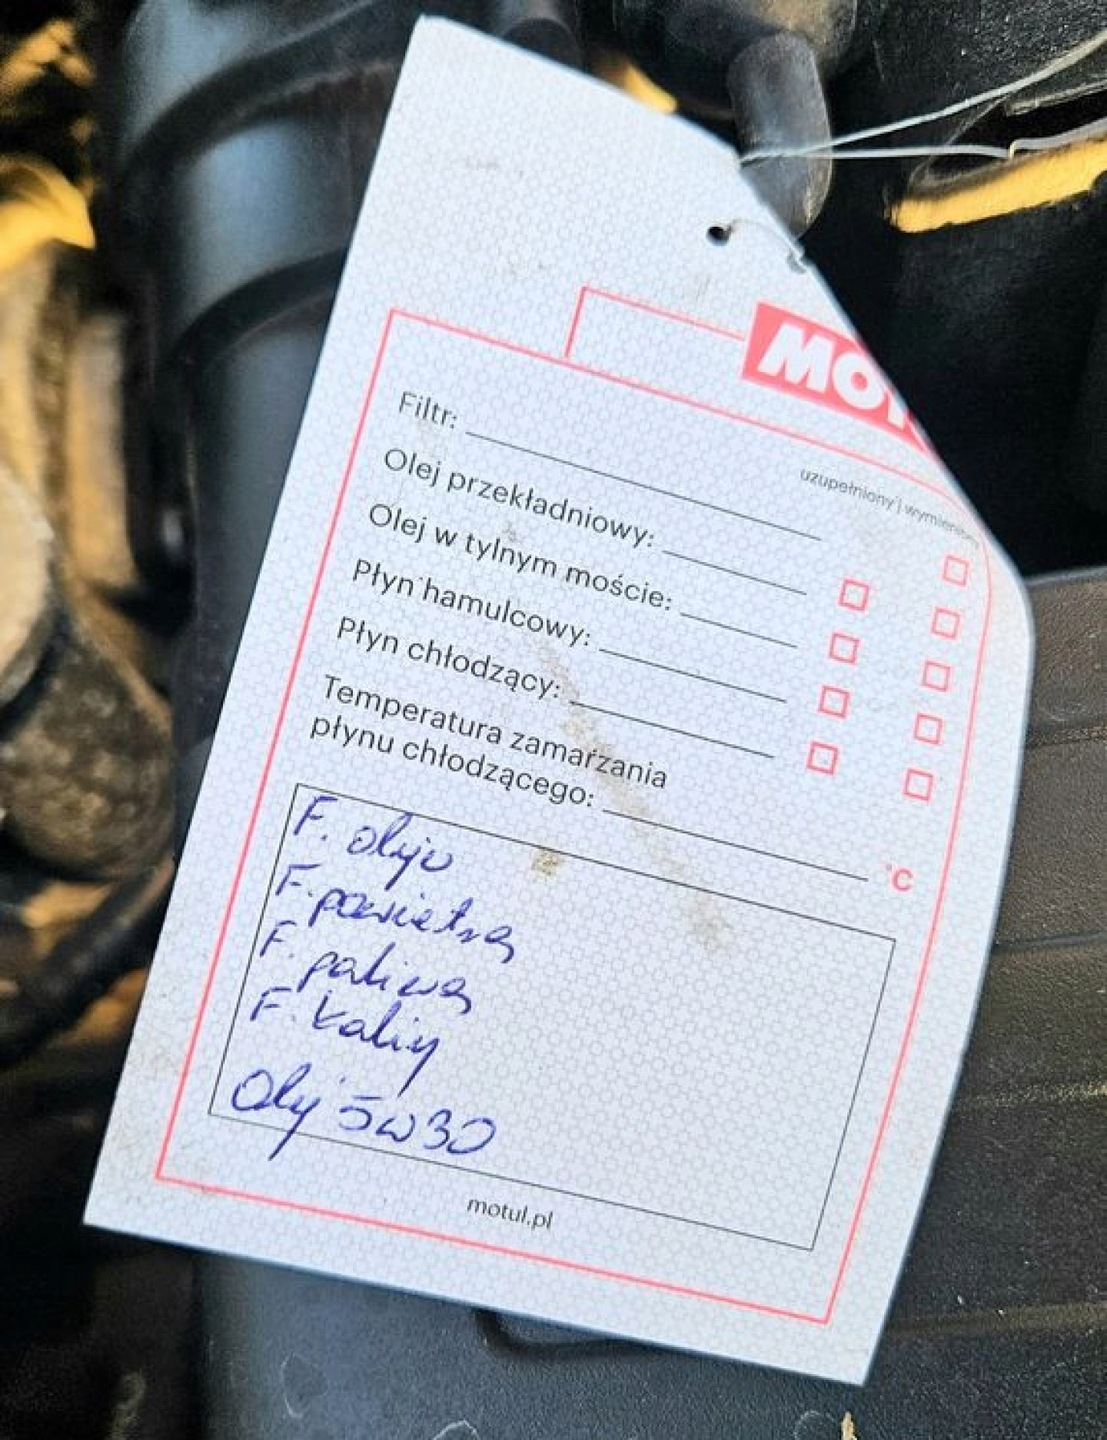 MOT
uzupełniony | wymieniony
Filtr:
Olej przekładniowy:
Olej w tylnym moście:
Płyn hamulcowy:
Płyn chłodzący:
Temperatura zamarzania
płynu chłodzącego:
°C
F. oleju
F. powietrza
F. paliwa
F. kabiny
Olej 5W30
motul.pl